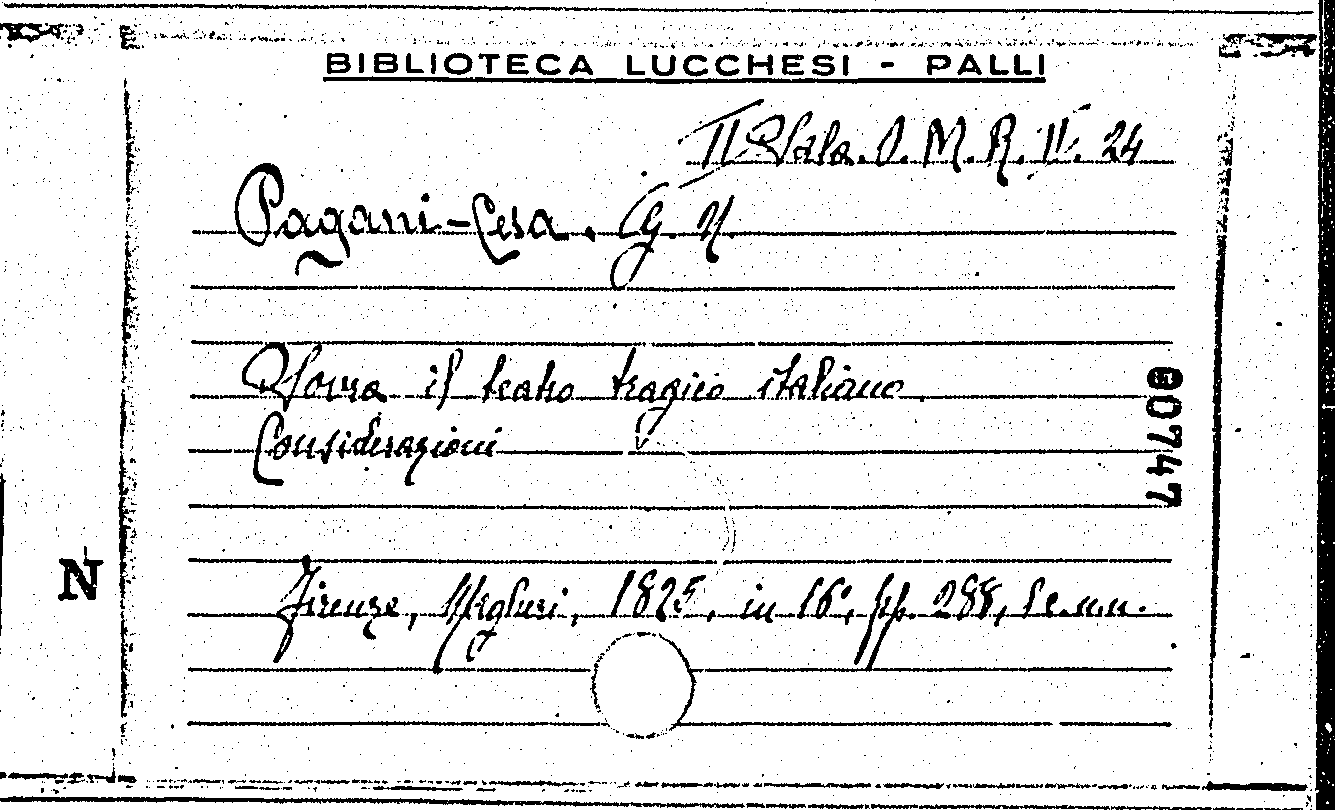 BIBLIOTECA LUCCHESI - PALLI
II Sala. O. M. R. II. 24
Pagani-Cesa. G. U.
Sovra il teatro tragico italiano.
Considerazioni
00747
N
Firenze, Magheri, 1825, in 16°, pp. 288, 1 c.n.n.